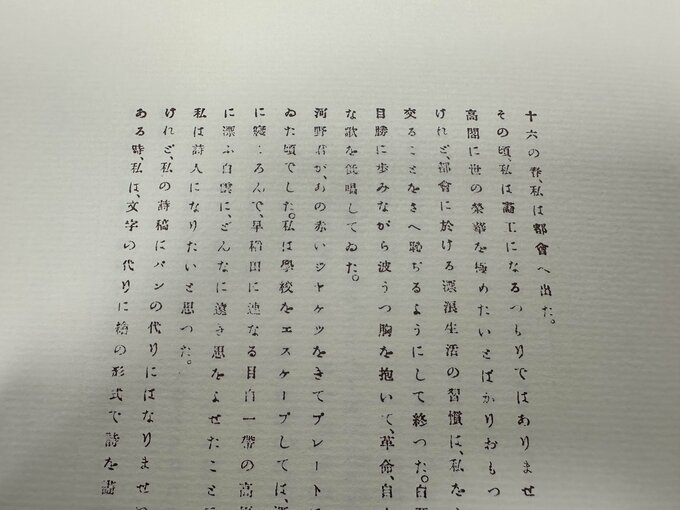 十六の春、私は都會へ出た。
その頃、私は畵工になるつもりではありませ
高閣に世の榮華を極めたいとばかりおもつ
けれど、都會に於ける漂浪生活の習慣は、私を
交ることをさへ恥ぢるようにして終つた。白
目勝に歩みながら波うつ胸を抱いて、革命、自
な歌を低唱してゐた。
河野君が、あの赤いジャケツをきてプレート
ゐた頃でした。私は學校をエスケープしては、
に寢ころんで、早稻田に連なる目白一帶の高
に漂ふ白雲に、どんなに遠き思をよせたこと
私は詩人になりたいと思つた。
けれど、私の詩稿にパンの代りにはなりませ
ある時、私は、文字の代りに繪の形式で詩を畵